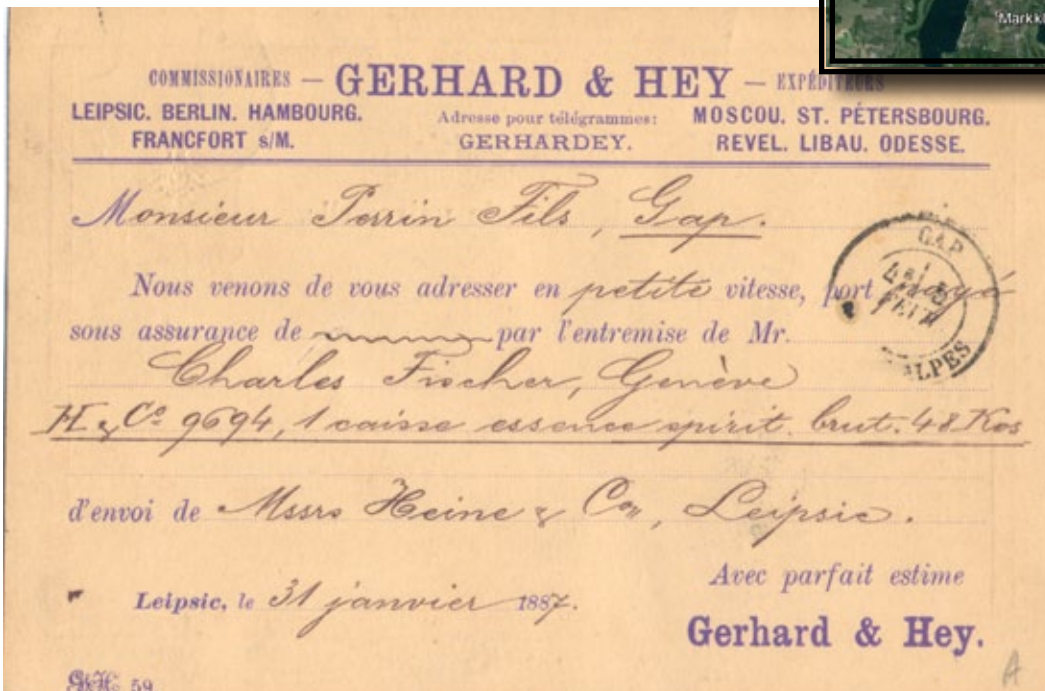 Markk
COMMISSIONAIRES — GERHARD & HEY — EXPÉDITEURS
LEIPSIC. BERLIN. HAMBOURG.
FRANCFORT s/M.
Adresse pour télégrammes:
GERHARDEY.
MOSCOU. ST. PÉTERSBOURG.
REVEL. LIBAU. ODESSE.
Monsieur Perrin Fils, Gap.
Nous venons de vous adresser en petite vitesse, port payé
sous assurance de par l'entremise de Mr.
Charles Fischer, Genève
H & Co 9694, 1 caisse essence spirit. brut. 48 Kos
d'envoi de Mssrs Heine & Co, Leipsic.
Leipsic, le 31 janvier 1887.
Avec parfait estime
Gerhard & Hey.
GAP
ALPES
G&H. 59
A